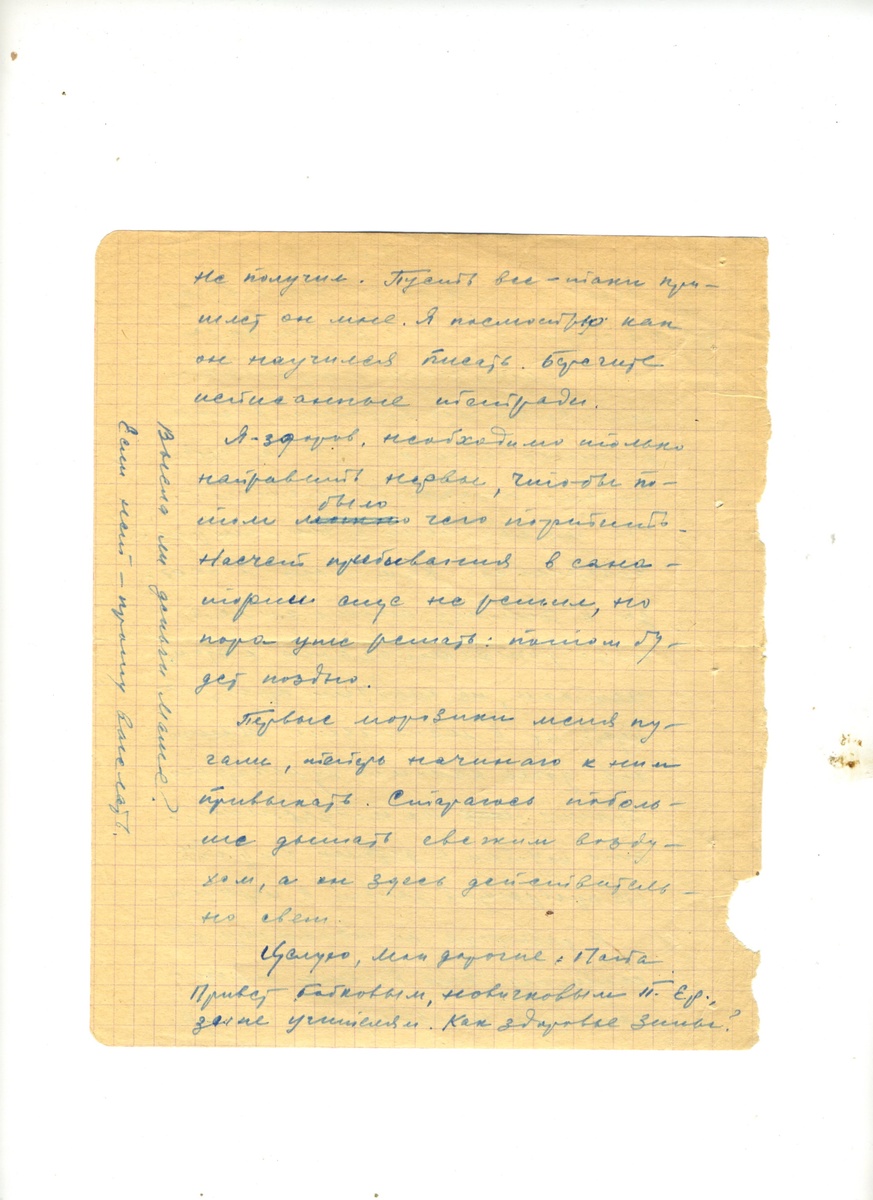 не получил. Пусть все-таки при-
шлет он мне. Я посмотрю как
он научился писать. Берегите
исписанные тетради.
Я-здоров, необходимо только
направить нервы, чтобы по-
том было чего портить.
Насчет пребывания в сана-
тории еще не решил, но
пора уже решать: потом бу-
дет поздно.
Первые морозики меня пу-
гали, теперь начинаю к ним
привыкать. Стараюсь поболь-
ше дышать свежим возду-
хом, а он здесь действитель-
но свеж.
Целую, мои дорогие. Папа
Привет Бабковым, Новичковым П. Еф.,
учителям. Как здоровье Зины?
Выслал ли деньги Маше?
Если нет - прошу выслать.